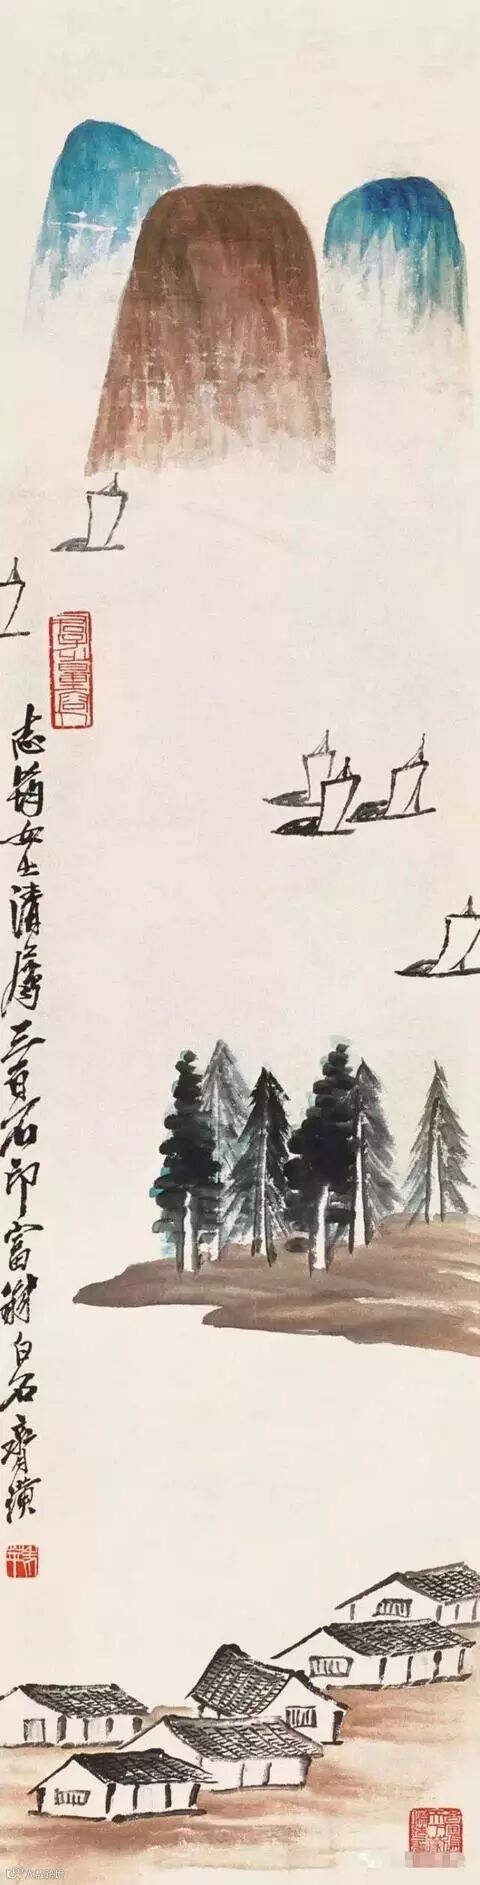 志筠女士清屬三百石印富翁白石齊璜